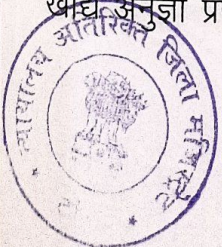 खाद्य अनुज्ञा प्र
न्यायालय अतिरिक्त जिला मजिस्ट्रेट